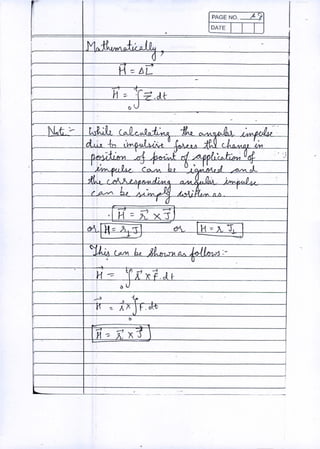 PAGE NO.
DATE
Mathematically,
H⃗ = ΔL⃗
H⃗ = ∫₀ᵗ τ⃗.dt
Note:- While Calculating the angular impulse
due to impulsive forces the change in
position of point of application of
impulse can be ignored and
the corresponding angular impulse
can be simply written as.
H⃗ = r⃗ × J⃗
or H = r⊥J or H = r J⊥
This can be shown as follows:-
H⃗ = ∫₀ᵗ r⃗ × F⃗.dt
H⃗ = r⃗ × ∫₀ᵗ F⃗.dt
H⃗ = r⃗ × J⃗